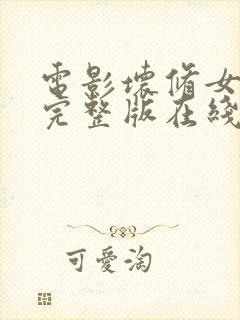 電影壞脩女
完整版在綫
可愛淘